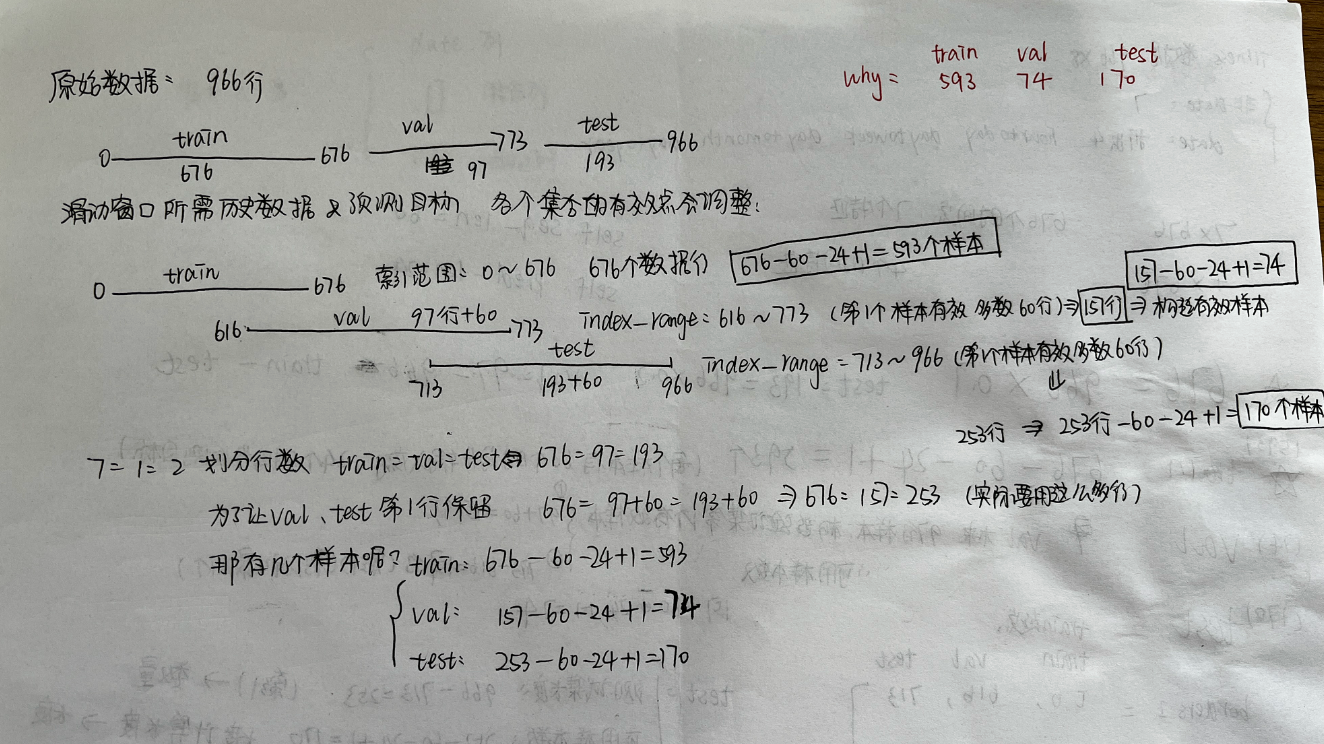 train val test
why: 593 74 170
原始数据: 966行
train val test
0 676 773 966
676 97 193
滑动窗口所需历史数据&预测目标, 各个集合的有效起点会调整:
train
0 676 索引范围: 0~676 676个数据行 676-60-24+1=593个样本
157-60-24+1=74
val 97行+60
616 773 index_range: 616~773 (第1个样本有效 多数60行)⇒157行⇒构造有效样本
test
713 193+60 966 index_range=713~966 (第1个样本有效多数60行)
⇓
253行 ⇒ 253行-60-24+1=170个样本
7:1:2 划分行数 train:val:test⇔676:97:193
为了让val、test第1行保留 676: 97+60: 193+60 ⇒676:157:253 (实际要用这么多行)
那有几个样本呢? train: 676-60-24+1=593
val: 157-60-24+1=74
test: 253-60-24+1=170